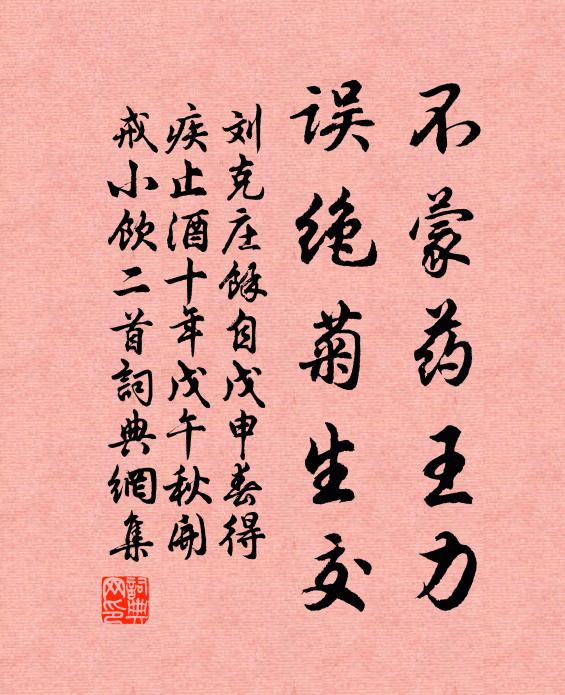 不蒙药王力
误绝菊生交
刘克庄馀自戊申春得
疾止酒十年戊午秋開
戒小饮二首詞典網集
詞典網印